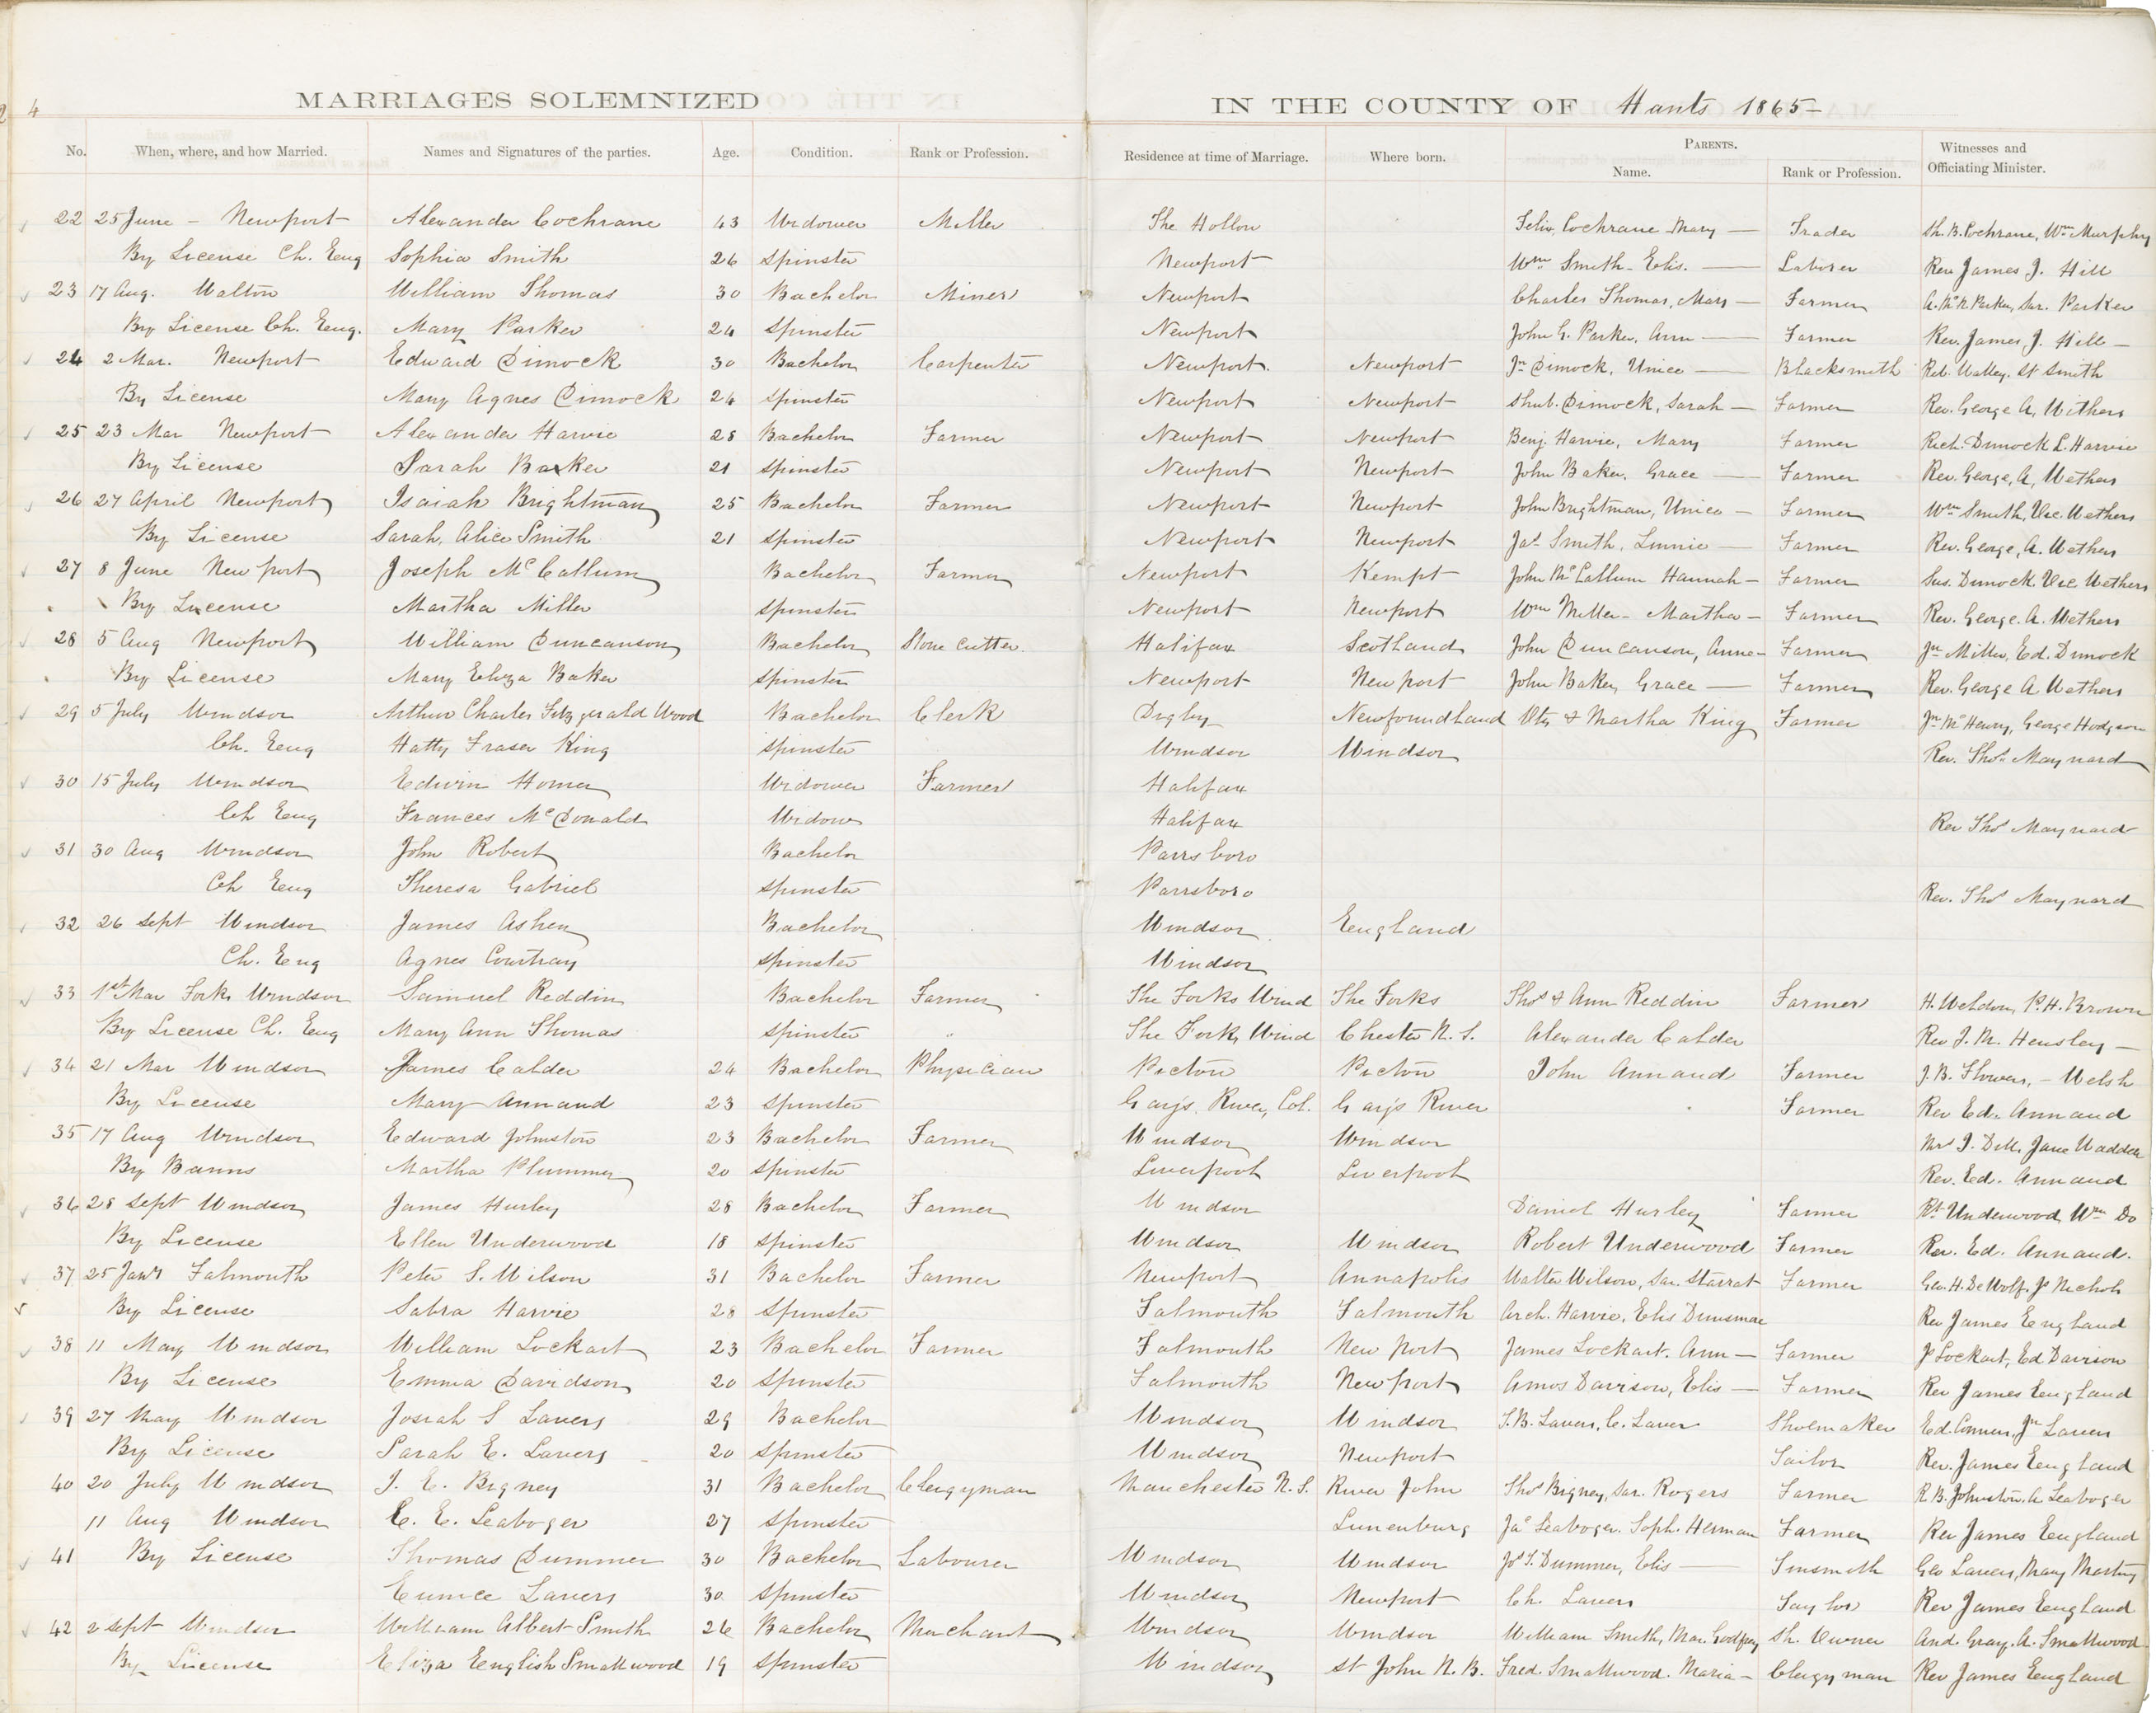 4
MARRIAGES SOLEMNIZED IN THE COUNTY OF Hants 1865
No. When, where, and how Married. Names and Signatures of the parties. Age. Condition. Rank or Profession. Residence at time of Marriage. Where born. PARENTS. Name. Rank or Profession. Witnesses and Officiating Minister.
22 25 June - Newport Alexander Cochrane 43 Widower Miller The Hollow Felix Cochrane Mary — Trader Sh. B. Cochrane, Wm Murphy
By License Ch. Eng Sophia Smith 26 Spinster Newport Wm Smith - Elis. — Laborer Rev James J. Hill
23 17 Aug. Walton William Thomas 30 Bachelor Miner Newport Charles Thomas, Mary — Farmer Parker, Sar. Parker
By License Ch. Eng. Mary Parker 24 Spinster Newport John G. Parker, Ann — Farmer Rev. James J. Hill —
24 2 Mar. Newport Edward Dimock 30 Bachelor Carpenter Newport Newport Jn Dimock, Unice — Blacksmith St Smith
By License Mary Agnes Dimock 24 Spinster Newport Newport Shub. Dimock, Sarah — Farmer Rev. George A. Withers
25 23 Mar Newport Alexander Harvie 28 Bachelor Farmer Newport Newport Benj. Harvie, Mary Farmer Rich. Dimock L. Harvie
By License Sarah Baker 21 Spinster Newport Newport John Baker, Grace — Farmer Rev. George, A, Wethers
26 27 April Newport Isaiah Brightman 25 Bachelor Farmer Newport Newport John Brightman, Unice — Farmer Wm Smith, Wethers
By License Sarah, Alice Smith 21 Spinster Newport Newport Jas Smith, Linnie — Farmer Rev. George, A. Wethers
27 8 June Newport Joseph McCallum Bachelor Farmer Newport Kempt John McCallum Hannah — Farmer Sus. Dimock Wethers
By License Martha Miller Spinster Newport Newport Wm Miller - Martha — Farmer Rev. George. A. Wethers
28 5 Aug Newport William Duncanson Bachelor Stone Cutter. Halifax Scotland John Duncanson, Anne — Farmer Jn Miller, Ed. Dimock
By License Mary Eliza Baker Spinster Newport Newport John Baker, Grace — Farmer Rev. George A Wethers
29 5 July Windsor Arthur Charles Fitzgerald Wood Bachelor Clerk Digby Newfoundland & Martha King Farmer Jn McHenry, George Hodgson
Ch. Eng Hatty Fraser King Spinster Windsor Windsor Rev. Thos Maynard
30 15 July Windsor Edwin Homer Widower Farmer Halifax
Ch Eng Frances McDonald Widow Halifax Rev Thos Maynard
31 30 Aug Windsor John Robert Bachelor Parrsboro
Ch Eng Theresa Gabriel Spinster Parrsboro Rev. Thos Maynard
32 26 Sept Windsor James Ashen Bachelor Windsor England
Ch. Eng Agnes Courtnay Spinster Windsor
33 1st Mar Forks Windsor Samuel Reddin Bachelor Farmer The Forks Wind The Forks Thos & Ann Reddin Farmer H. Weldon, P. H. Brown
By License Ch. Eng Mary Ann Thomas Spinster " The Forks Wind Chester N. S. Alexander Calder Rev J. M. Hensley —
34 21 Mar Windsor James Calder 24 Bachelor Physician Pictou Pictou John Annand Farmer J. B. Flowers, - Welsh
By License Mary Annand 23 Spinster Gays River, Col. Gays River Farmer Rev Ed. Annand
35 17 Aug Windsor Edward Johnston 23 Bachelor Farmer Windsor Windsor Mrs J. Dill, Jane Waddell
By Banns Martha Plummer 20 Spinster Liverpool Liverpool Rev. Ed. Annand
36 28 Sept Windsor James Hurley 28 Bachelor Farmer Windsor Daniel Hurley Farmer Rt Underwood Wm Do
By License Ellen Underwood 18 Spinster Windsor Windsor Robert Underwood Farmer Rev. Ed. Annand.
37 25 Jany Falmouth Peter S. Wilson 31 Bachelor Farmer Newport Annapolis Walter Wilson, Sar. Starrat Farmer Geo. H. DeWolf. Js Nichols
By License Sabra Harvie 28 Spinster Falmouth Falmouth Arch. Harvie, Elis Dunsmae Rev James England
38 11 May Windsor William Lockart 23 Bachelor Farmer Falmouth Newport James Lockart. Ann — Farmer Js Lockart, Ed Davison
By License Emma Davidson 20 Spinster Falmouth Newport Amos Davison, Elis — Farmer Rev James England
39 27 May Windsor Josiah S Lavers 29 Bachelor Windsor Windsor S. B. Lavers, C. Laver Shoemaker Ed. Conner, Jn Lavers
By License Sarah E. Lavers 20 Spinster Windsor Newport Sailor Rev. James England
40 20 July Windsor J. E. Bigney 31 Bachelor Clergyman Manchester N. S. River John Thos Bigney, Sar. Rogers Farmer R. B. Johnston. A Leaboger
11 Aug Windsor C. E. Seaboger 27 Spinster Lunenburg Jas Seaboger. Soph. Herman Farmer Rev James England
41 By License Thomas Dummer 30 Bachelor Labourer Windsor Windsor Jos S. Dummer, Elis — Tinsmith Geo Lavers, Mary Martin
Eunice Lavers 30 Spinster Windsor Newport Ch. Lavers Taylor Rev James England
42 2 Sept Windsor William Albert Smith 26 Bachelor Merchant Windsor Windsor William Smith, Mar. Godfrey Sh. Owner And. Gray. A. Smallwood
By License Eliza English Smallwood 19 Spinster Windsor St John N. B. Fred. Smallwood. Maria — Clergyman Rev James England